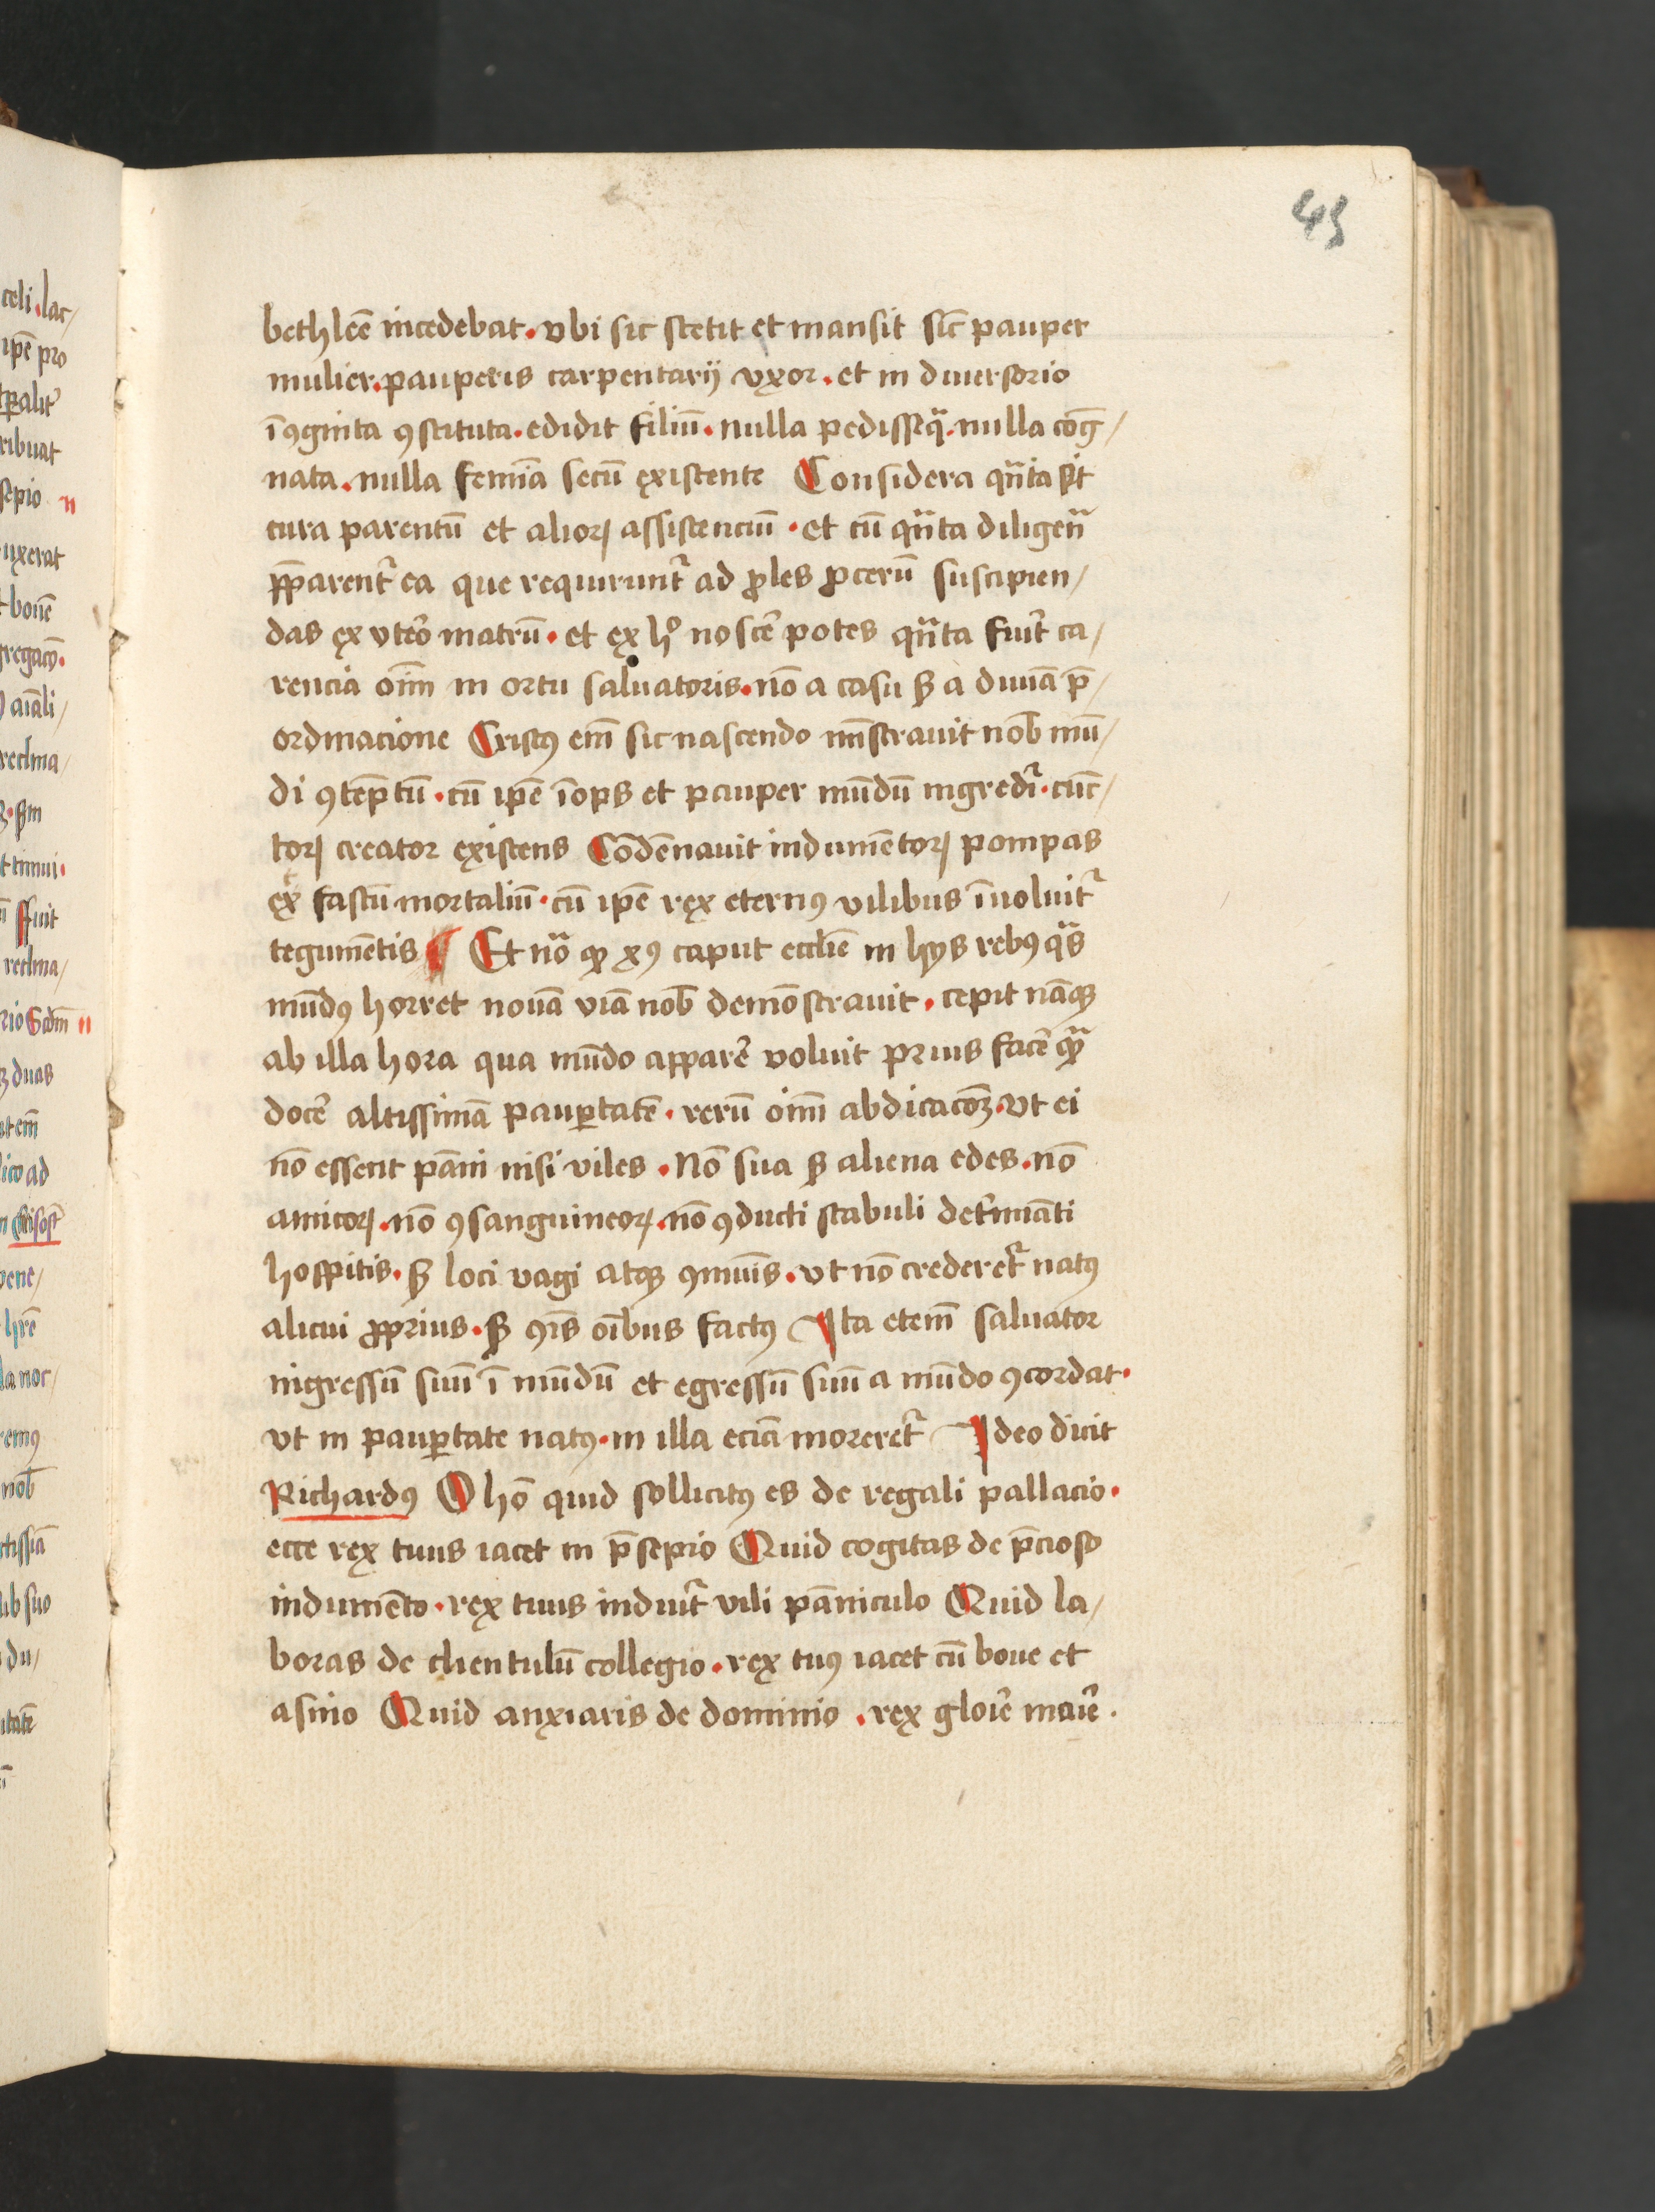 45
bethleē incedebat. vbi sic stetit et mansit sic̄ pauper
mulier. pauperis carpentarij vxor. et in diuersorio
īꝯgnita ꝯstituta. edidit filiū. nulla pedisseq̄. nulla coḡ/
nata. nulla femīa secū existente Considera qn̄ta sit
cura parentū et alioꝝ assistenciū. et cū qn̄ta diligen̄
p̄parent̄ ea que requirunt̄ ad ꝓles ꝓcerū suscipien/
das ex vte᷒ro matrū. et ex hͦ nosce᷒ potes qn̄ta fuit᷒ ca/
rencia oīm in ortu saluatoris. nō a casu sꝫ a diuīa p̄/
ordinacione Cristꝰ em̄ sic nascendo mn̄strauit nob̄ mū/
di ꝯtēptū. cū ip̄e īops et pauper mūdū ingredi᷒. cūc/
toꝝ creator existens Cōdēnauit indumētoꝝ pompas
ex fastū mortaliū. cū ip̄e rex eternꝰ vilibus īuoluit᷒
tegumētis ¶ Et nōa ꝙ xꝰ caput eccl̄ie in hijs rebꝰ q̄s
mūdꝰ horret nouā viā nob̄ demōstrauit. cepit nāqꝫ
ab illa hora qua mūdo appare᷒ voluit prius face᷒ qꝫ̄
doce᷒ altissimā paup̱tatē. rerū oīm abdicacōꝫ. vt ei
nō essent pāni nisi viles. Nō sua sꝫ aliena edes. nō
amicoꝝ. nō ꝯsanguineoꝝ. nō ꝯducti stabuli det᷒mināti
hospitis. sꝫ loci vagi atqꝫ ꝯmuīs. vt nō crederet᷒ natꝰ
alicui ꝓprius. sꝫ ꝯīs oībus factꝰ Ita etem̄ saluator
ingressū suū ī mūdū et egressū suū a mūdo ꝯcordat.
vt in paup̱tate natꝰ. in illa eciā moreret᷒ Ideo dicit
Richardꝰ O hō quid sollicitꝰ es de regali pallacio.
ecce rex tuus iacet in p̄sepio Quid cogitas de p̄cioso
indumēto. rex tuus induit᷒ vili pāniculo Quid la/
boras de clientulū collegio. rex tuꝰ iacet cū boue et
asino Quid anxiaris de dominio. rex glorie᷒